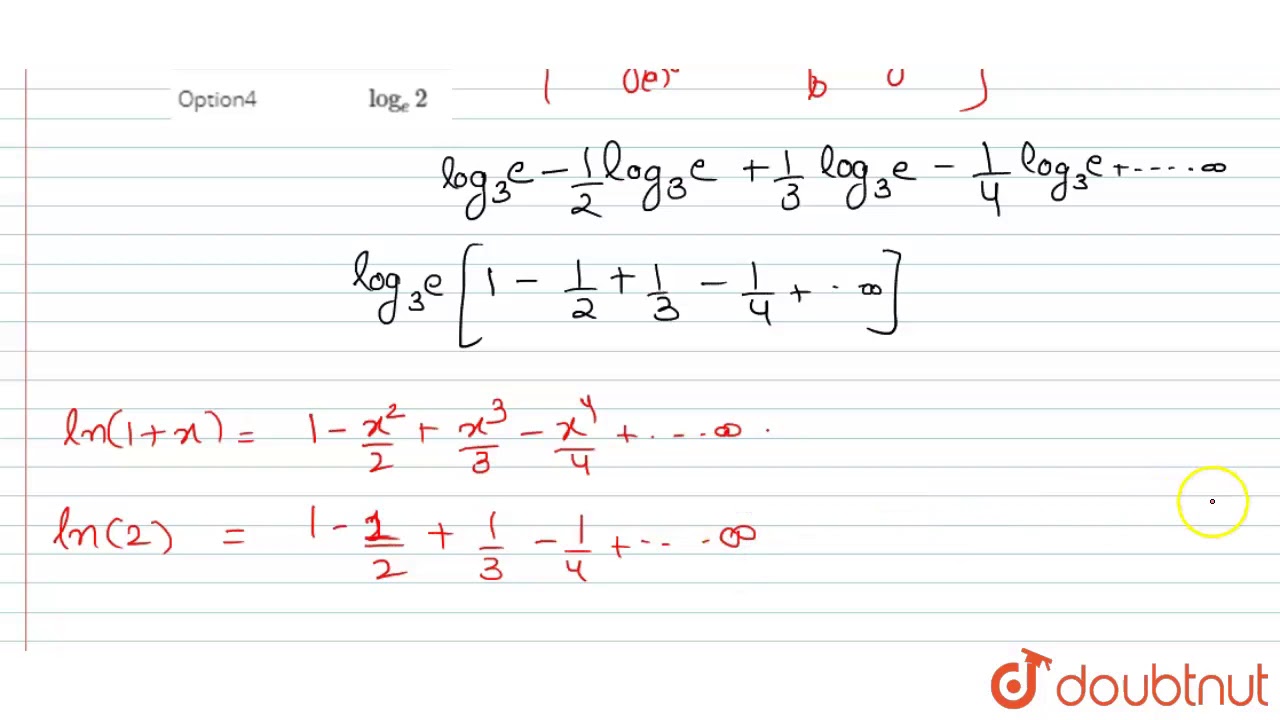 Option4 log_e 2
log₃e − 1/2 log₃e + 1/3 log₃e − 1/4 log₃e + ..... ∞
log₃e [1 − 1/2 + 1/3 − 1/4 + .. ∞]
ln(1+x) = 1 − x²/2 + x³/3 − x⁴/4 + .... ∞ .
ln(2) = 1 − 1/2 + 1/3 − 1/4 + .... ∞
doubtnut